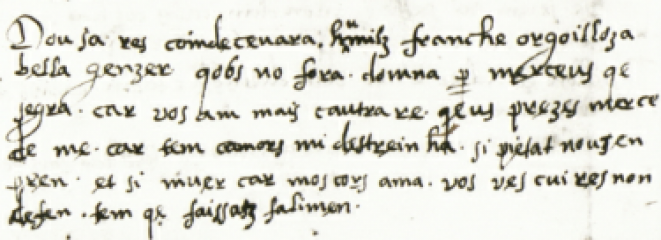 Dousa res coindecenara. humilz franche orgoilloza
bella genzer qobs no fora. domna p merceus qe
segra. car vos am mais cautra re. qeus prezes merce
de me. car tem camors mi destreinha. si pietat nousen
pren. et si muer car mos cors ama. vos ves cui res non
defen. tem qe faissatz falimen.